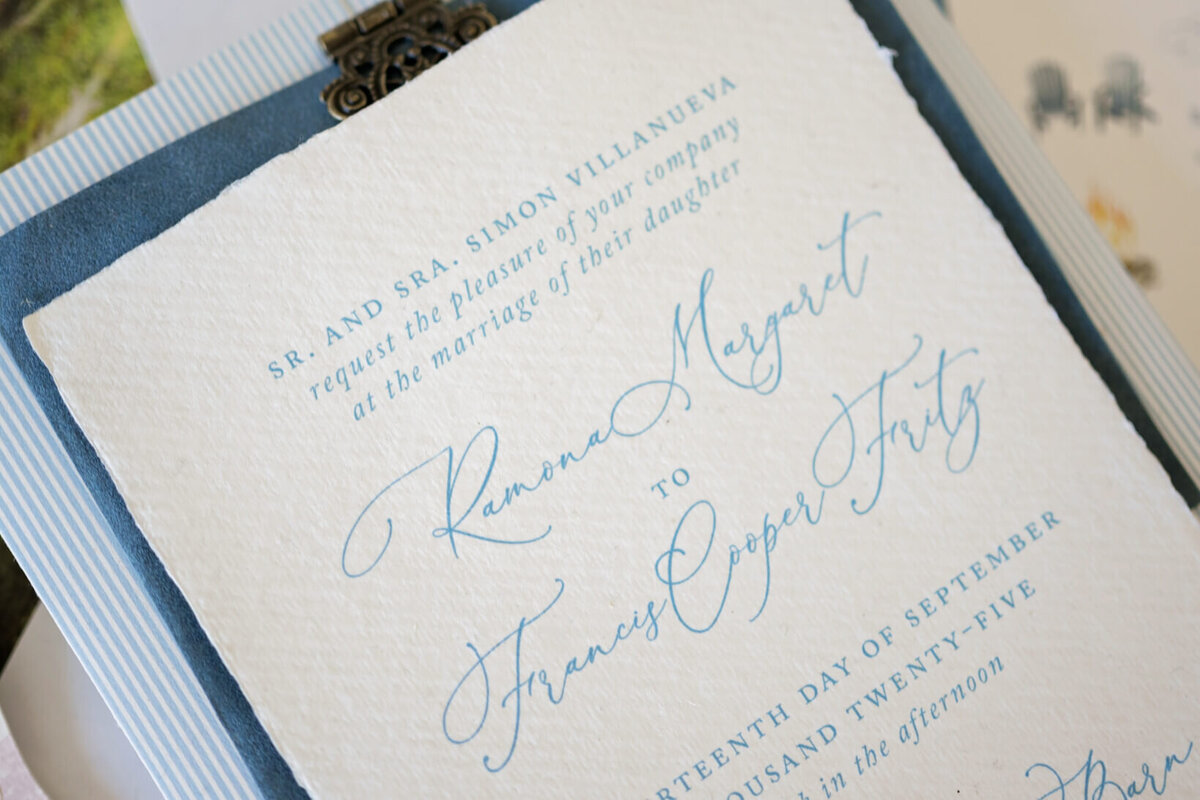 SR. AND SRA. SIMON VILLANUEVA
request the pleasure of your company
at the marriage of their daughter
Ramona Margaret
TO
Francis Cooper Fritz
DAY OF SEPTEMBER
TWENTY-FIVE
in the afternoon
Barn